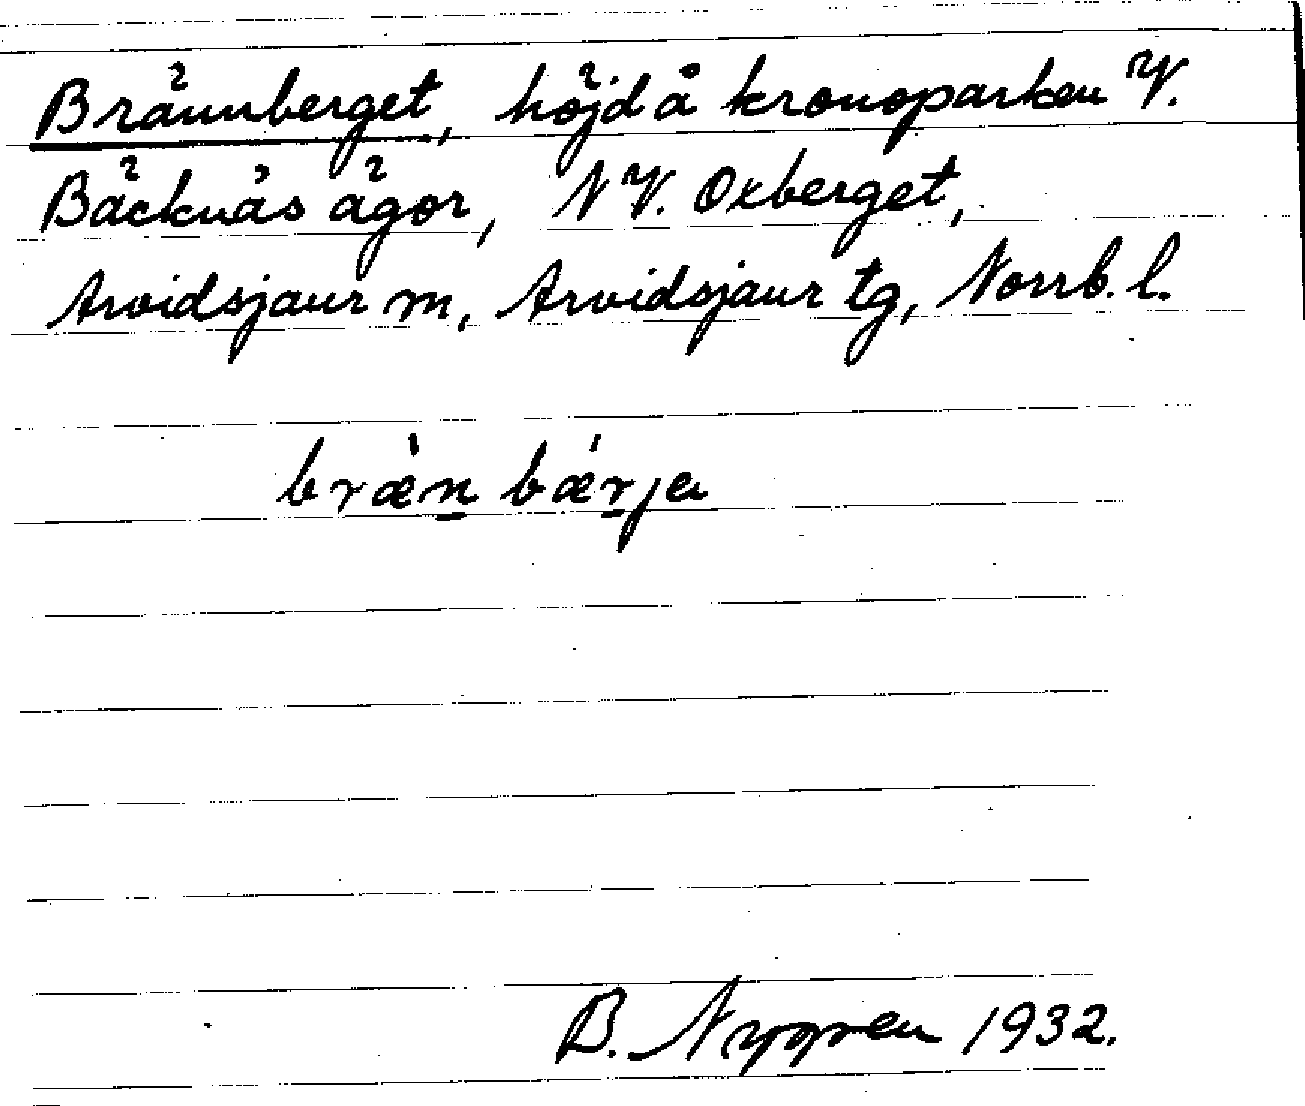 Brännberget, höjd å kronoparken V.
Bäcknäs ägor, NV. Oxberget,
Arvidsjaur m, Arvidsjaur tg, Norrb. l.
bræ̀n bǽrjɐ
B. Nygren 1932.